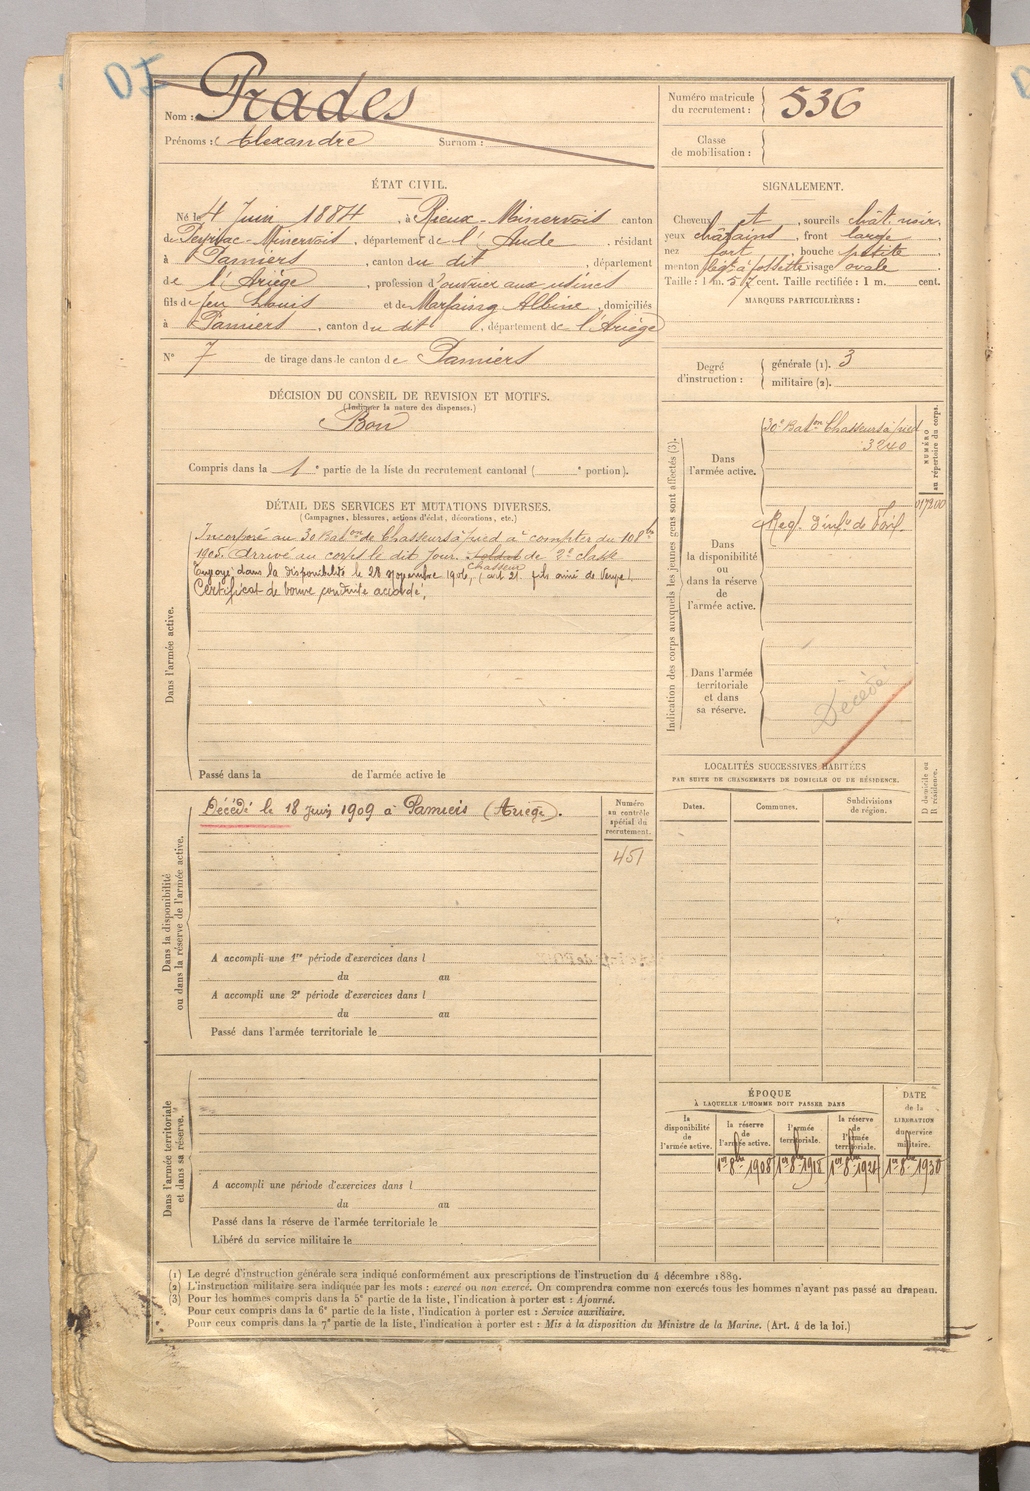 DI
Nom : Prades
Prénoms : Alexandre Surnom :
Numéro matricule du recrutement : 536
Classe de mobilisation :
ÉTAT CIVIL.
Né le 4 Juin 1884, à Rieux-Minervois canton
de Peyriac-Minervois, département de l'Aude, résidant
à Pamiers, canton du dit, département
de l'Ariège, profession d'ouvrier aux usines
fils de feu Louis et de Marfaing Albine, domiciliés
à Pamiers, canton du dit, département de l'Ariège
N° 7 de tirage dans le canton de Pamiers
SIGNALEMENT.
Cheveux et, sourcils chât. noir,
yeux châtains, front large,
nez fort, bouche petite
menton à fossette visage ovale
Taille : 1 m. 57 cent. Taille rectifiée : 1 m. cent.
MARQUES PARTICULIÈRES :
Degré d'instruction : générale (1). 3
militaire (2).
DÉCISION DU CONSEIL DE REVISION ET MOTIFS.
(Indiquer la nature des dispenses.)
Bon
Compris dans la 1e partie de la liste du recrutement cantonal ( e portion).
DÉTAIL DES SERVICES ET MUTATIONS DIVERSES.
(Campagnes, blessures, actions d'éclat, décorations, etc.)
Dans l'armée active.
Incorporé au 30 Baton de Chasseurs à pied à compter du 10 8bre
1905. Arrivé au corps le dit jour. Soldat de 2e classe
Chasseur
Envoyé dans la disponibilité le 28 novembre 1906, (art 21. fils ainé de veuve).
Certificat de bonne conduite accordé,
Passé dans la de l'armée active le
Indication des corps auxquels les jeunes gens sont affectés (3).
NUMÉRO au répertoire du corps.
Dans l'armée active.
30e Baton Chasseurs à pied
3240
Dans la disponibilité ou dans la réserve de l'armée active.
Regt d'infie de Foix
Dans l'armée territoriale et dans sa réserve.
Décédé
LOCALITÉS SUCCESSIVES HABITÉES
PAR SUITE DE CHANGEMENTS DE DOMICILE OU DE RÉSIDENCE.
Dates. Communes. Subdivisions de région. D domicile ou R résidence.
Dans la disponibilité ou dans la réserve de l'armée active.
Décédé le 18 juin 1909 à Pamiers (Ariège).
Numéro au contrôle spécial du recrutement.
451
A accompli une 1re période d'exercices dans l
du au
A accompli une 2e période d'exercices dans l
du au
Passé dans l'armée territoriale le
Dans l'armée territoriale et dans sa réserve.
A accompli une période d'exercices dans l
du au
Passé dans la réserve de l'armée territoriale le
Libéré du service militaire le
ÉPOQUE
À LAQUELLE L'HOMME DOIT PASSER DANS
la disponibilité de l'armée active. la réserve de l'armée active. l'armée territoriale. la réserve de l'armée territoriale. DATE de la LIBÉRATION du service militaire.
1er 8bre 1908 1er 8bre 1918 1er 8bre 1924 1er 8bre 1930
(1) Le degré d'instruction générale sera indiqué conformément aux prescriptions de l'instruction du 4 décembre 1889.
(2) L'instruction militaire sera indiquée par les mots : exercé ou non exercé. On comprendra comme non exercés tous les hommes n'ayant pas passé au drapeau.
(3) Pour les hommes compris dans la 5e partie de la liste, l'indication à porter est : Ajourné.
Pour ceux compris dans la 6e partie de la liste, l'indication à porter est : Service auxiliaire.
Pour ceux compris dans la 7e partie de la liste, l'indication à porter est : Mis à la disposition du Ministre de la Marine. (Art. 4 de la loi.)